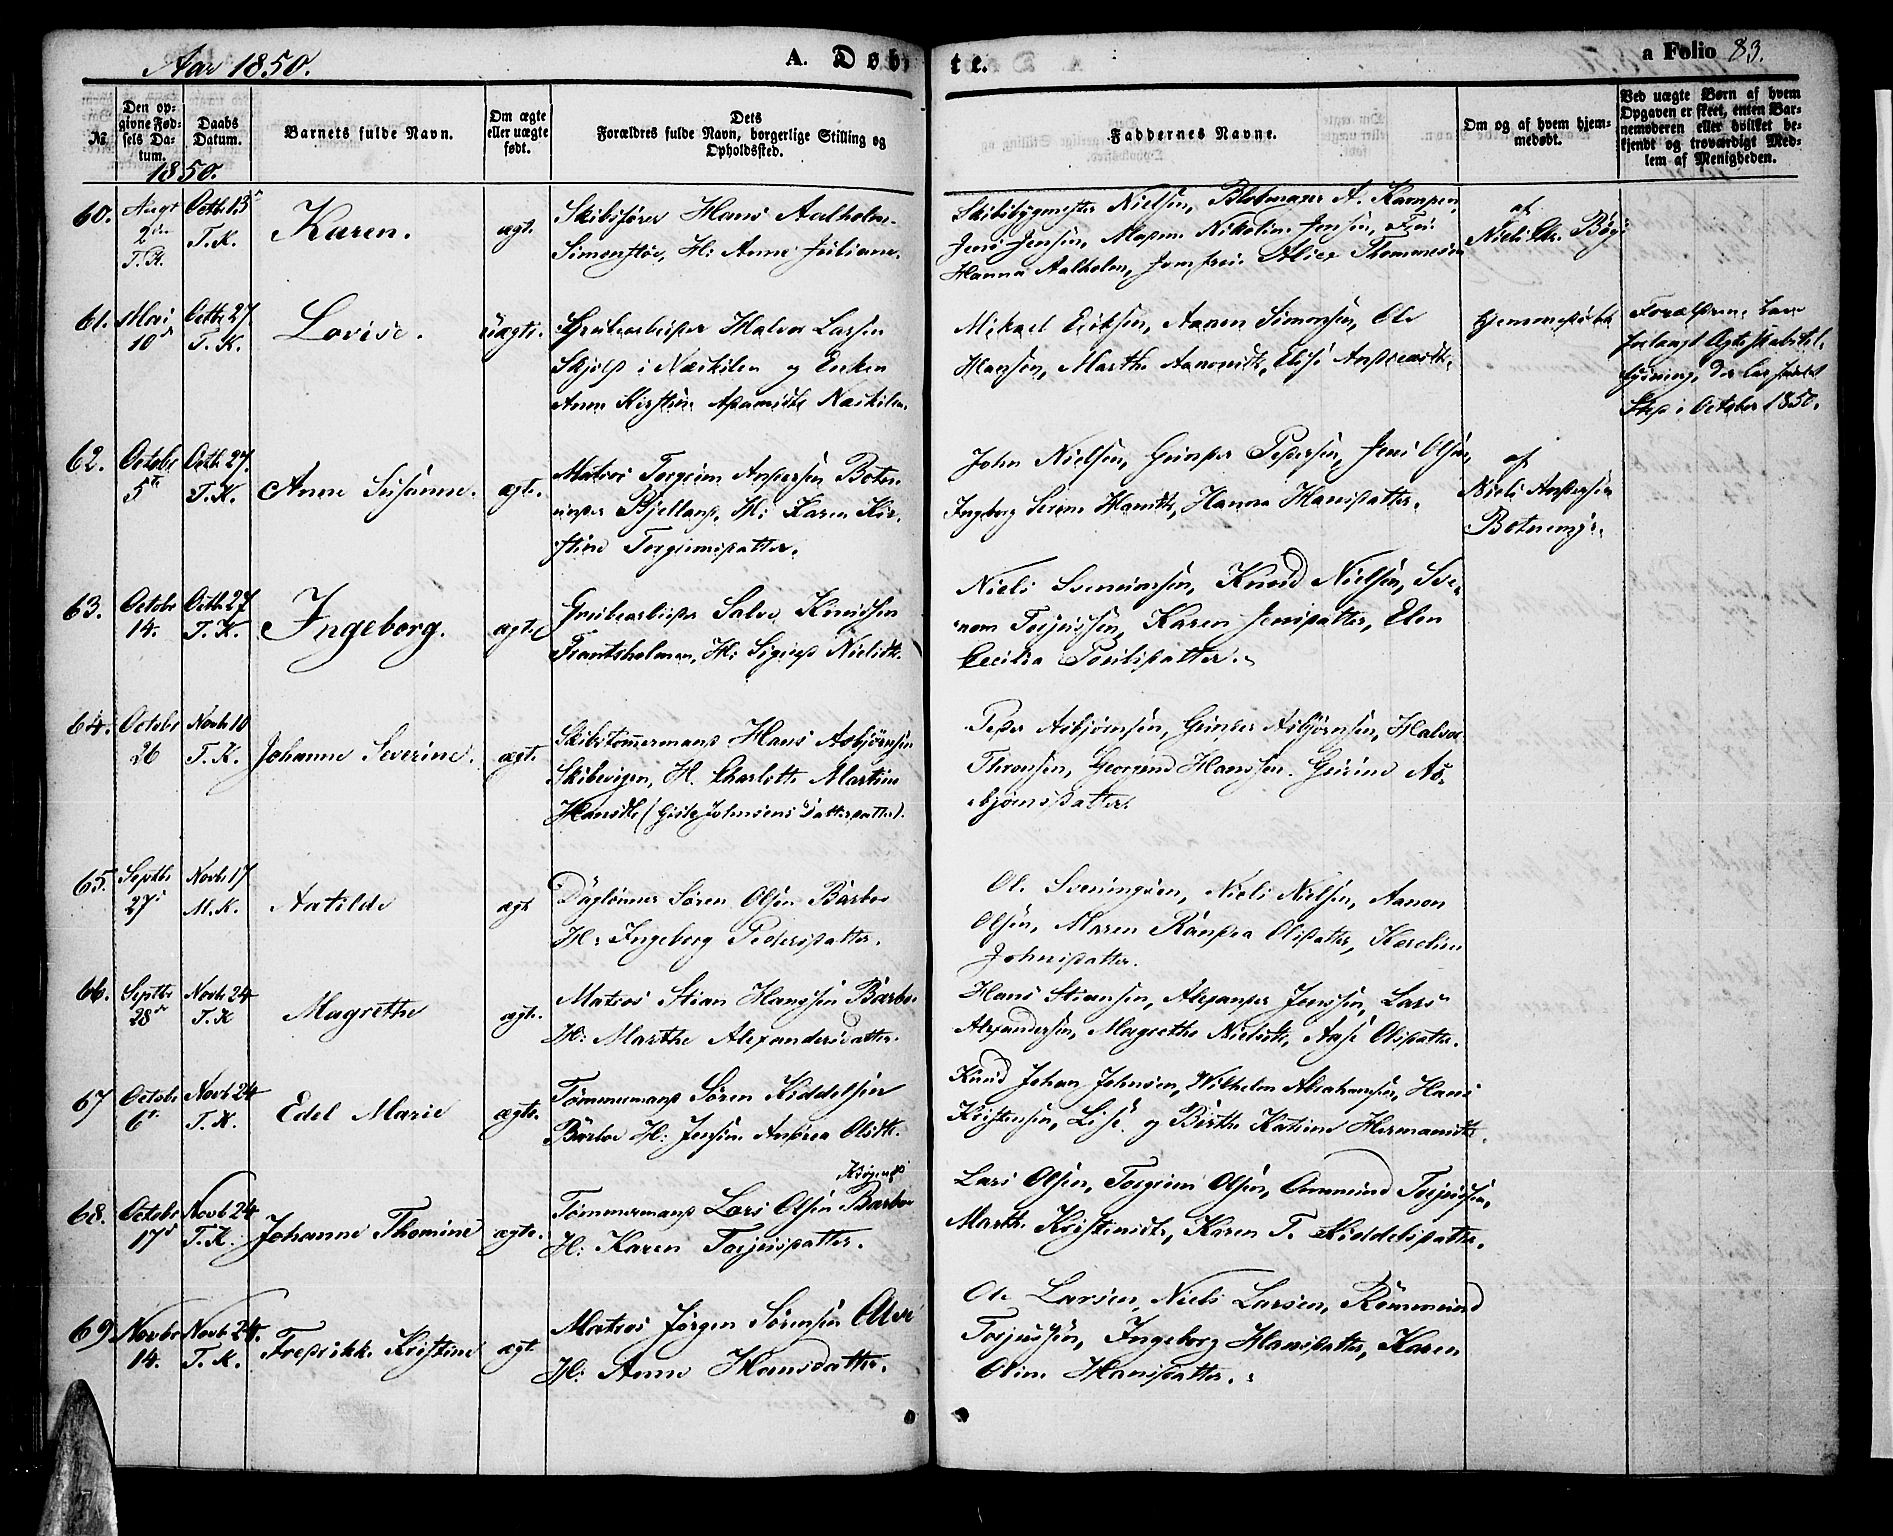 Aar 1850.
A. Døbte.
a Folio 83.
№
Den opgivne Fødsels Datum.
Daabs Datum.
Barnets fulde Navn.
Om ægte eller uægte født.
Dets Forældres fulde Navn, borgerlige Stilling og Opholdssted.
Faddernes Navne.
Om og af hvem hjemmedøbt.
Ved uægte Børn af hvem Opgaven er skeet, enten Barnemoderen eller hvilket bekjendt og troværdigt Medlem af Menigheden.
1850.
60.
Augt
2den
T. K.
Octb: 13
T. K.
Karen.
ægt.
Skibsfører Hans Aalholm
H: Anne Juliane
Skibsbygmester Nielsen, A. Kampen,
Jens Jensen, Nikoline Jensen,
Hanna Aalholm, Jomfrue Alice Thommesen
af
Niels Chr. Bøge
61.
Mai
10d
Octb: 27
T. K.
Lovise.
uægte.
Grubearbeider Halvor Larsen
i Næskilen og Enken
Anne Kirstine Næskilen
Mikael Eriksen, Aanen Simonsen, Ole
Hansen, Marthe Aanonsdt, Elise
hjemmedøbt
Forældrene have
forlangt Ægteskabstil-
lysning,
i October 1850.
62.
Octobr
5te
Octb. 27.
T. K.
Anne Susanne.
ægte.
Matros Torgrim Andersen Boten
Bjelland, H: Karen Kir-
stine Torgrimsdatter.
John Nielsen, Gunder Pedersen, Jens Olsen,
Ingeborg Serene Hansdt, Hanna Hansdatter.
af
Niels Andersen
Botnemyr.
63.
Octobr
14.
Octb: 27
T. K.
Ingeborg.
ægte
Grubearbeider Salve Knudsen
Frantsholmen, H: Sigrid Nielsdt.
Niels Svenumsen, Knud Nielsen, Sve-
nom Terjussen, Karen Jensdatter, Elen
Cecilia Poulsdatter.
64.
Octobr
26
Novb: 10
T. K.
Johanne Severine.
ægte
Skibstømmermand Hans Asbjørnsen
Skibevigen, H. Charlotte Martine
Hansdt (Gisle Johnsens Datterdatter).
Peder Asbjørnsen, Gunder Asbjørnsen, Halvor
Thronsen, Georgend Hanssen. Gurine As-
bjørnsdatter.
65.
Septbr
27d
Novb: 17
M. K.
Aatilde
ægt
Daglønner Søren Olsen Barbo
H: Ingeborg Pedersdatter.
Ol. Sveningsen, Niels Nielsen, Aanon
Olsen, Maren Randea Olsdatter, Karoline
Johnsdatter.
66.
Septbr
28d
Novb: 24
T. K
Magrethe
ægte.
Matros Stian Hanssen Barbo
H: Marthe Alexandersdatter.
Hans Stiansen, Alexander Jenssen, Lars
Alexandersen, Magrethe Nielsdt, Aase Olsdatter.
67
Octobr
6te
Novb 24
T. K.
Edel Marie
ægte.
Tømmermand Søren Kiddelsen
Barbo H: Jensine Andrea Olsdt.
Knud Johan Johnsen, Wilhelm Abrahamsen, Hans
Kristensen, Lise og Birthe Katrine Hermansdt.
68.
Octobr
17d
Novb 24
T. K.
Johanne Thomine
ægte.
Tømmermand Lars Olsen Barbo
H: Karen Terjusdatter.
Lars Olsen, Torgrim Olsen, Ommund Terjussen,
Marthe Kristensdt, Karen T. Kiddelsdatter.
69.
Novbr
14.
Novb 24.
T. K.
Fredrikke Kristine
ægt
Matros Jørgen Sørensen
H: Anne Hansdatter.
Ole Larsen, Niels Larsen, Rommund
Terjussen, Ingeborg Hansdatter, Karen
Oline Hansdatter.